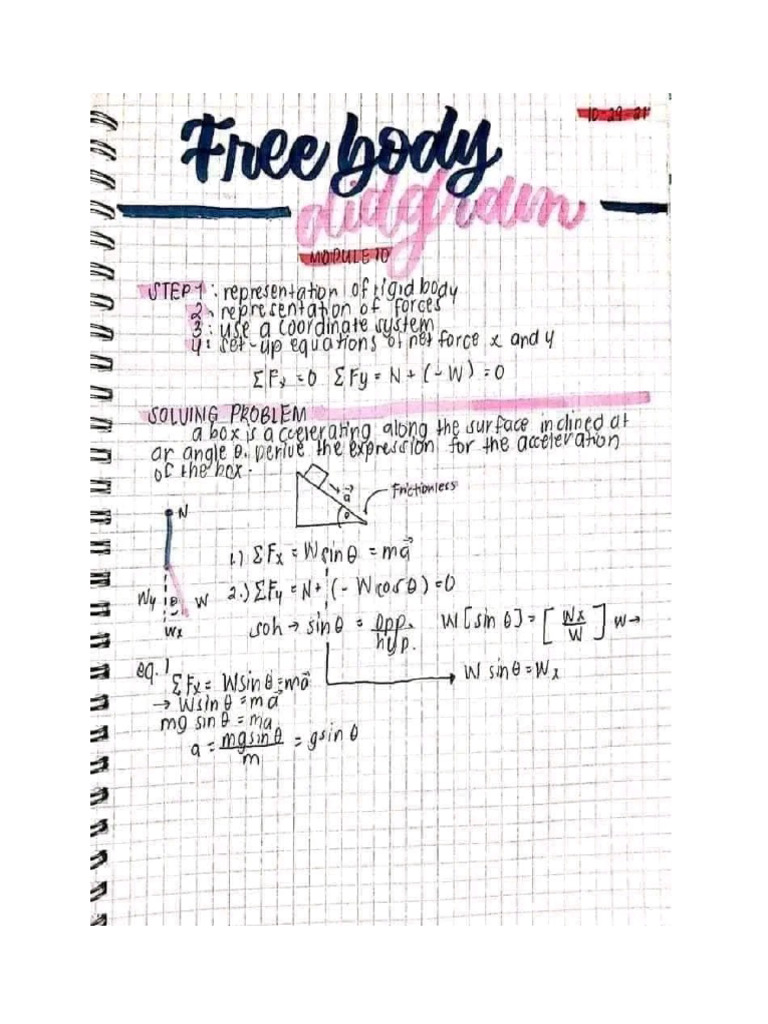 10-29-21
Free body
diagram
MODULE 10
STEP 1: representation of rigid body
2: representation of forces
3: use a coordinate system
4: set-up equations of net force x and y
ΣFx = 0 ΣFy = N + (-W) = 0
SOLVING PROBLEM
a box is accelerating along the surface inclined at
an angle θ. Derive the expression for the acceleration
of the box.
a⃗
Frictionless
θ
N
Wy θ W
Wx
1.) ΣFx = W sin θ = ma⃗
2.) ΣFy = N + (- W cos θ) = 0
soh → sin θ = opp. / hyp.
W [sin θ] = [Wx / W] W →
W sin θ = Wx
eq. 1
ΣFx = W sin θ = ma⃗
→ W sin θ = ma⃗
mg sin θ = ma
a = mg sin θ / m = g sin θ